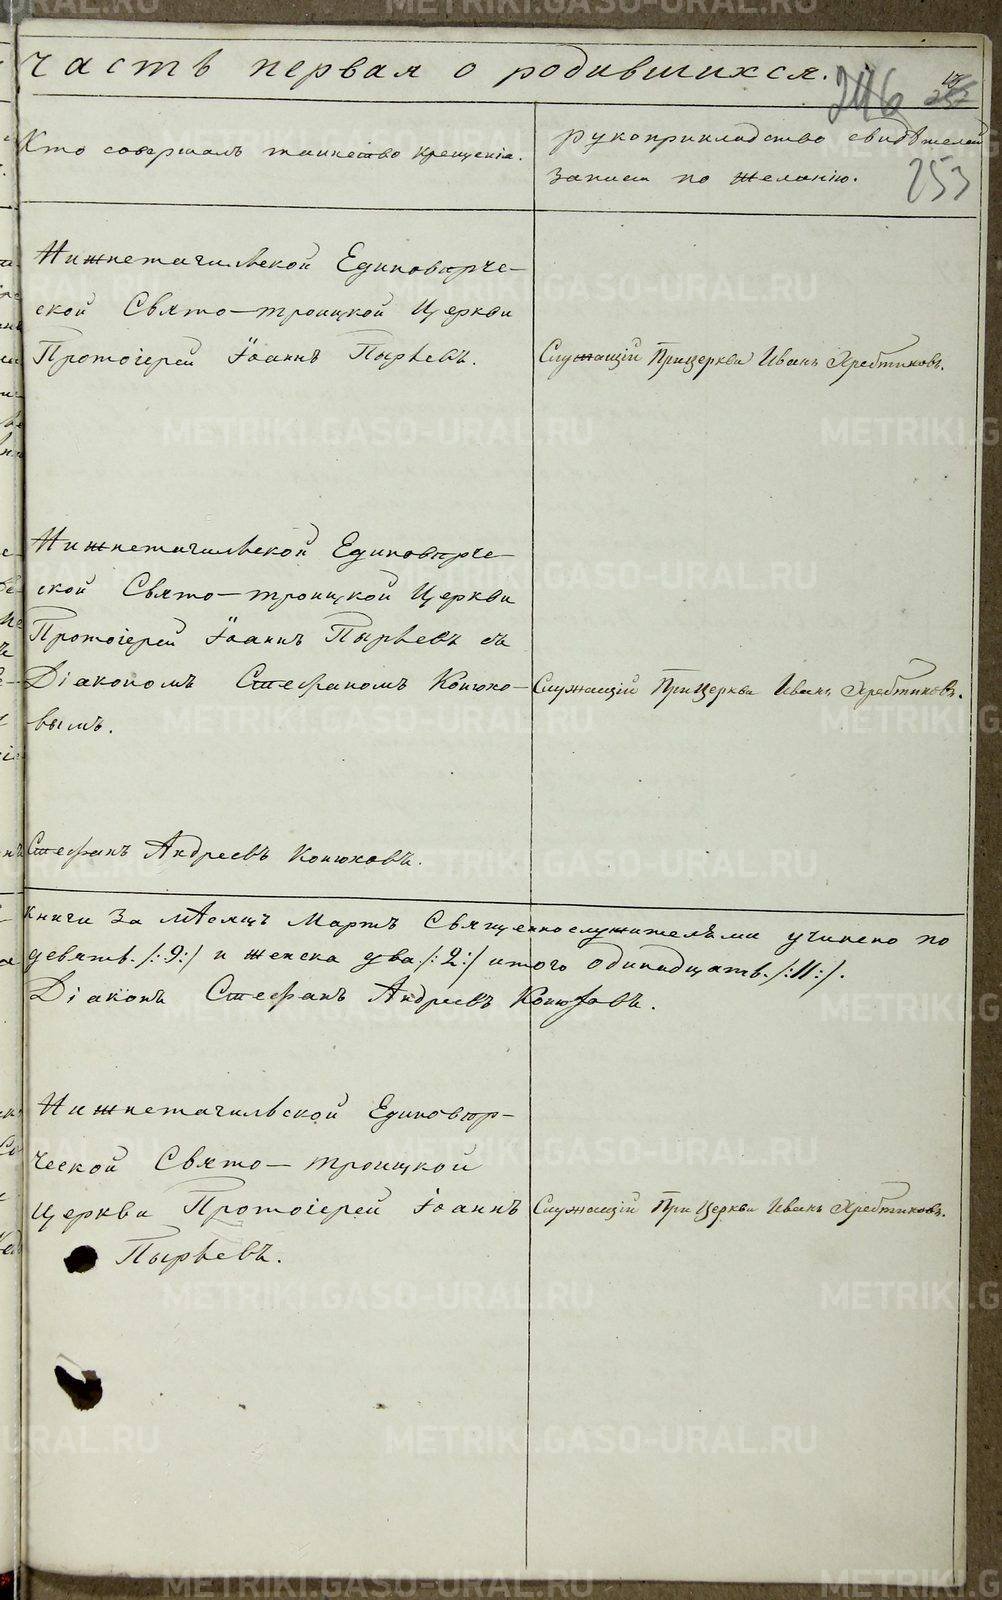 часть первая о родившихся.
246
253
Кто совершалъ таинство крещенія.
рукоприкладство свидѣтелей
записи по желанію.
Нижнетагильской Единовѣрче-
ской Свято-троицкой Церкви
Протоіерей Іоаннъ Пырьевъ.
Служащій Прицеркви Иванъ Хребтиковъ.
Нижнетагильской Единовѣрче-
ской Свято-троицкой Церкви
Протоіерей Іоаннъ Пырьевъ съ
Діакономъ Стефаномъ Конюхо-
вымъ.
Служащій Прицеркви Иванъ Хребтиковъ.
Стефанъ Андреевъ Конюховъ.
книги за мѣсяцъ Мартъ Священнослужителями учинено по
девять /:9:/ и женска два /:2:/ итого одинадцать /:11:/.
Діаконъ Стефанъ Андреевъ Конюховъ.
Нижнетагильской Единовѣр-
ческой Свято-троицкой
Церкви Протоіерей Іоаннъ
Пырьевъ.
Служащій При Церкви Иванъ Хребтиковъ.
METRIKI.GASO-URAL.RU